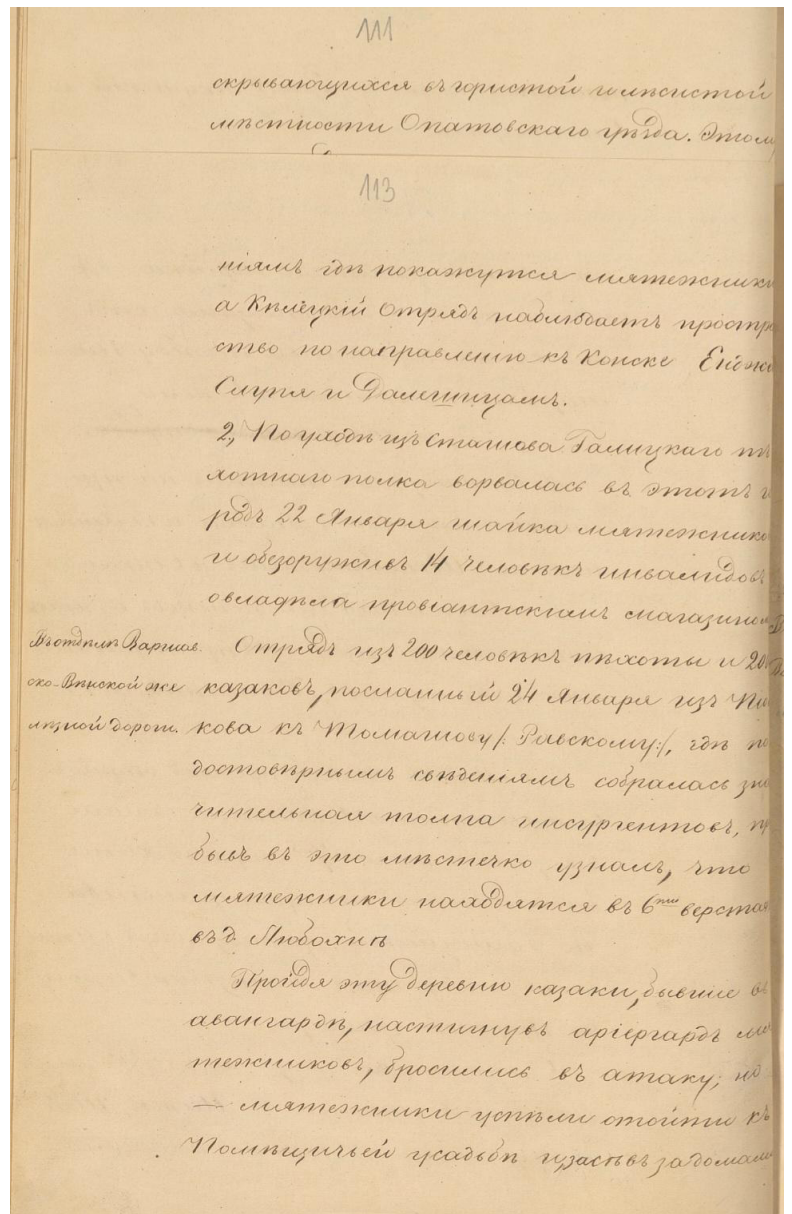 111
скрывающихся въ гористой и лѣсистой
мѣстности Опатовскаго уѣзда. Этом
113
ніямъ гдѣ покажутся мятежники
а Кѣлецкій отрядъ наблюдаетъ простра
ство по направленію къ Конске
Слупя и Далешицамъ.
2, По уходѣ изъ Сташова Галицкаго пѣ
хотнаго полка ворвалась въ этотъ г
родъ 22 Января шайка мятежнико
и обезоруживъ 14 человѣкъ инвалидовъ
овладѣла провіантскимъ магазином
Въ отдѣлѣ Варшав.
ско-Вѣнской же
лѣзной дороги.
Отрядъ изъ 200 человѣкъ пѣхоты и 20
казаковъ, посланный 24 Января изъ
кова къ Томашову /: Равскому:/, гдѣ по
достовѣрнымъ свѣденіямъ собралась зна
чительная толпа инсургентовъ, пр
бывъ въ это мѣстечко узналъ, что
мятежники находятся въ 6ти верстах
въ д Любохнѣ
Пройдя эту деревню казаки, бывшіе въ
авангардѣ, настигнувъ аріергардъ мя
тежниковъ, бросились въ атаку; но
— мятежники успѣли отойти къ
помѣщичьей усадьбѣ и, засѣвъ за домами